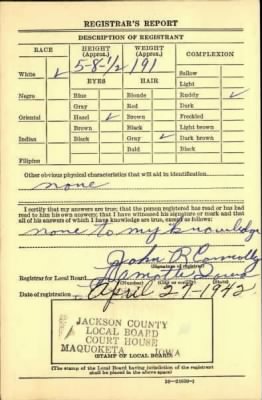 REGISTRAR'S REPORT
DESCRIPTION OF REGISTRANT
RACE HEIGHT (Approx.) WEIGHT (Approx.) COMPLEXION
5-8-1/2 191
White ✓ Sallow
EYES HAIR Light
Negro Blue Blonde Ruddy ✓
Gray Red Dark
Oriental Hazel ✓ Brown Freckled
Brown Black Light brown
Indian Black Gray ✓ Dark brown
Bald Black
Filipino
Other obvious physical characteristics that will aid in identification
none
I certify that my answers are true; that the person registered has read or has had
read to him his own answers; that I have witnessed his signature or mark and that
all of his answers of which I have knowledge are true, except as follows:
none to my knowledge
John R Connolly
(Signature of registrar)
Registrar for Local Board Lamotte Iowa
(Number) (City or county) (State)
Date of registration April 27-1942
JACKSON COUNTY
LOCAL BOARD
COURT HOUSE
MAQUOKETA IOWA
(STAMP OF LOCAL BOARD)
(The stamp of the Local Board having jurisdiction of the registrant
shall be placed in the above space)